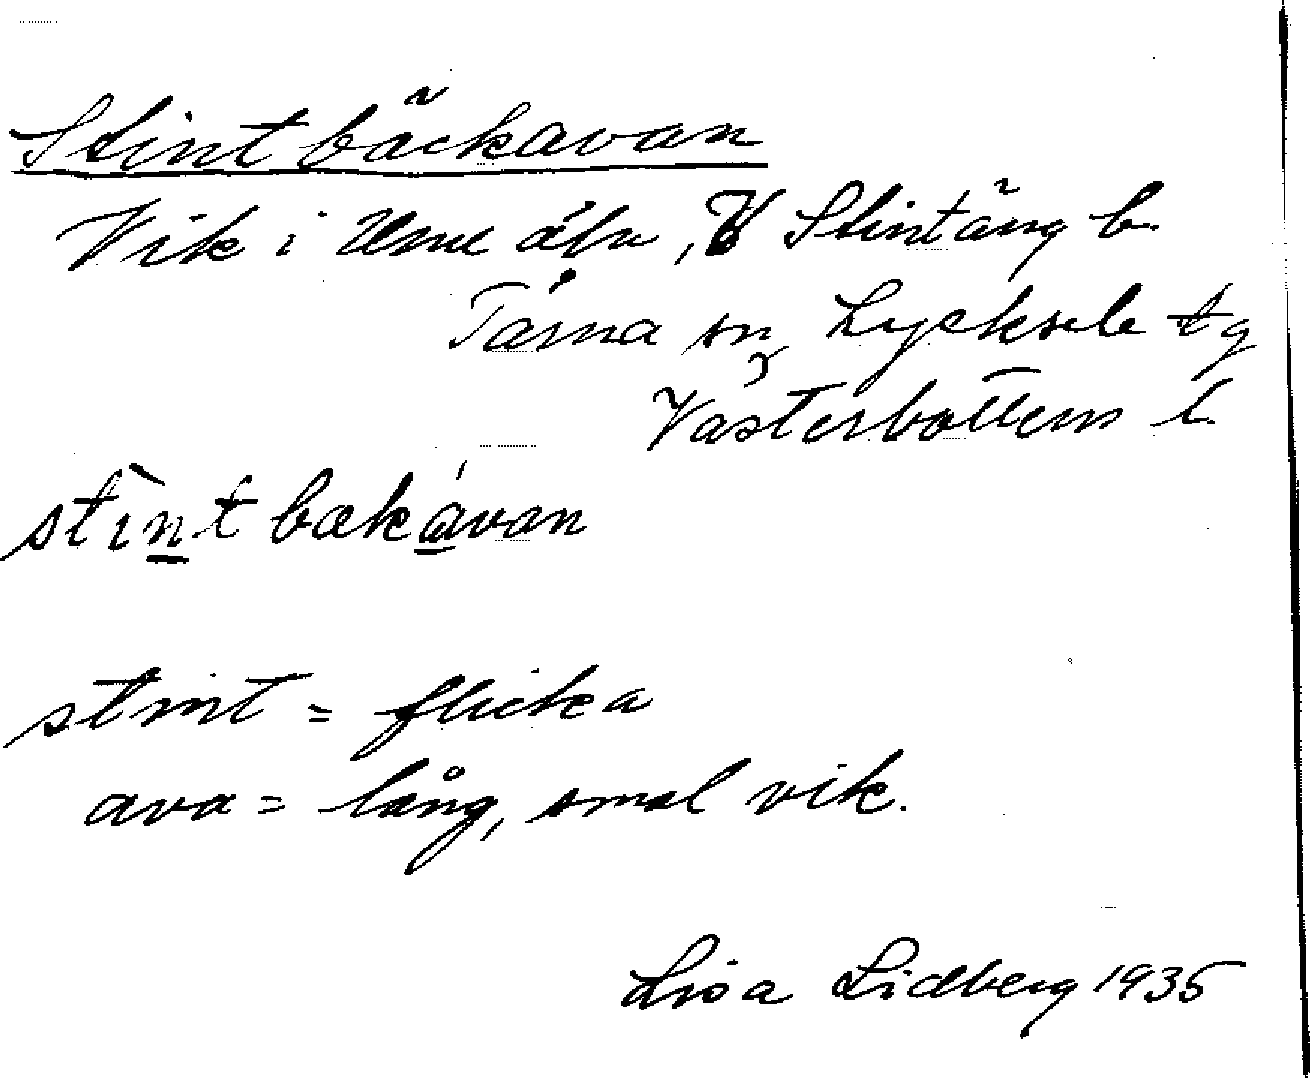 Stintbäckavan
Vik i Ume älv, V Stintäng b.
Tärna sn, Lycksele tg
Västerbottens l.
stìntbækávan
stint = flicka
ava = lång, smal vik.
Lisa Lidberg 1935